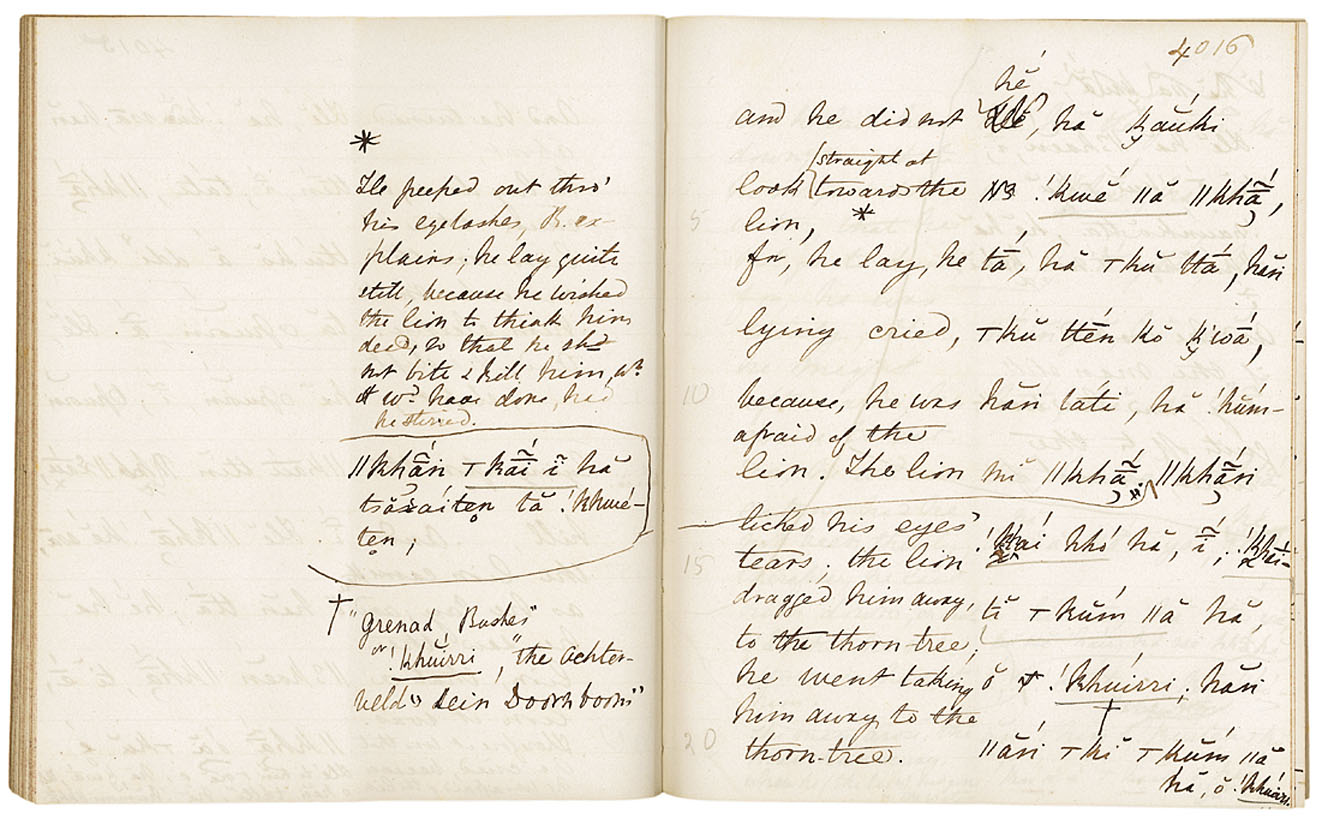 *
He peeped out thro'
his eyelashes, B. ex-
plains; he lay quite
still, because he wished
the lion to think him
dead, so that he shd
not bite & kill him, wh.
it wd. have done, had
he stirred.
ǁkhā́n kā́ĭ ĭ̃ hă
ten tă !khwé-
ten;
† "Grenad Bushes"
or !khūírri, "the Achter-
veld's lein Doornboom"
4016
and he did not hĕ, hă k̤ăúki
straight at
look towards the !kwé ǁă ǁkhā̃́,
5
lion, *
for, he lay, he tā́, hă ttā́, hăn
lying cried, ttḗn kŏ k̤'wā́,
10
because, he was hăn táti, hă !hŭ́m-
afraid of the
lion. The lion ǁkhā̃́. ǁkhā̃́n
licked his eyes'
15
tears, the lion hó hă, ī̃́,
dragged him away, tĭ kŭ́m ǁă hă,
to the thorn-tree;
he went taking ŏ !khūírri; hăn
him away to the †
20
thorn-tree. ǁắn kĭ kŭ́m ǁă
hă, ŏ !khūírri.